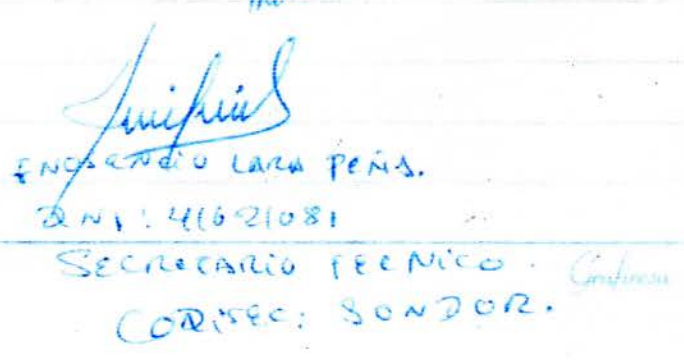 ENOSENCIO LARA PEÑA.
DNI: 41621081
SECRETARIO TECNICO.
CODISEC: SONDOR.